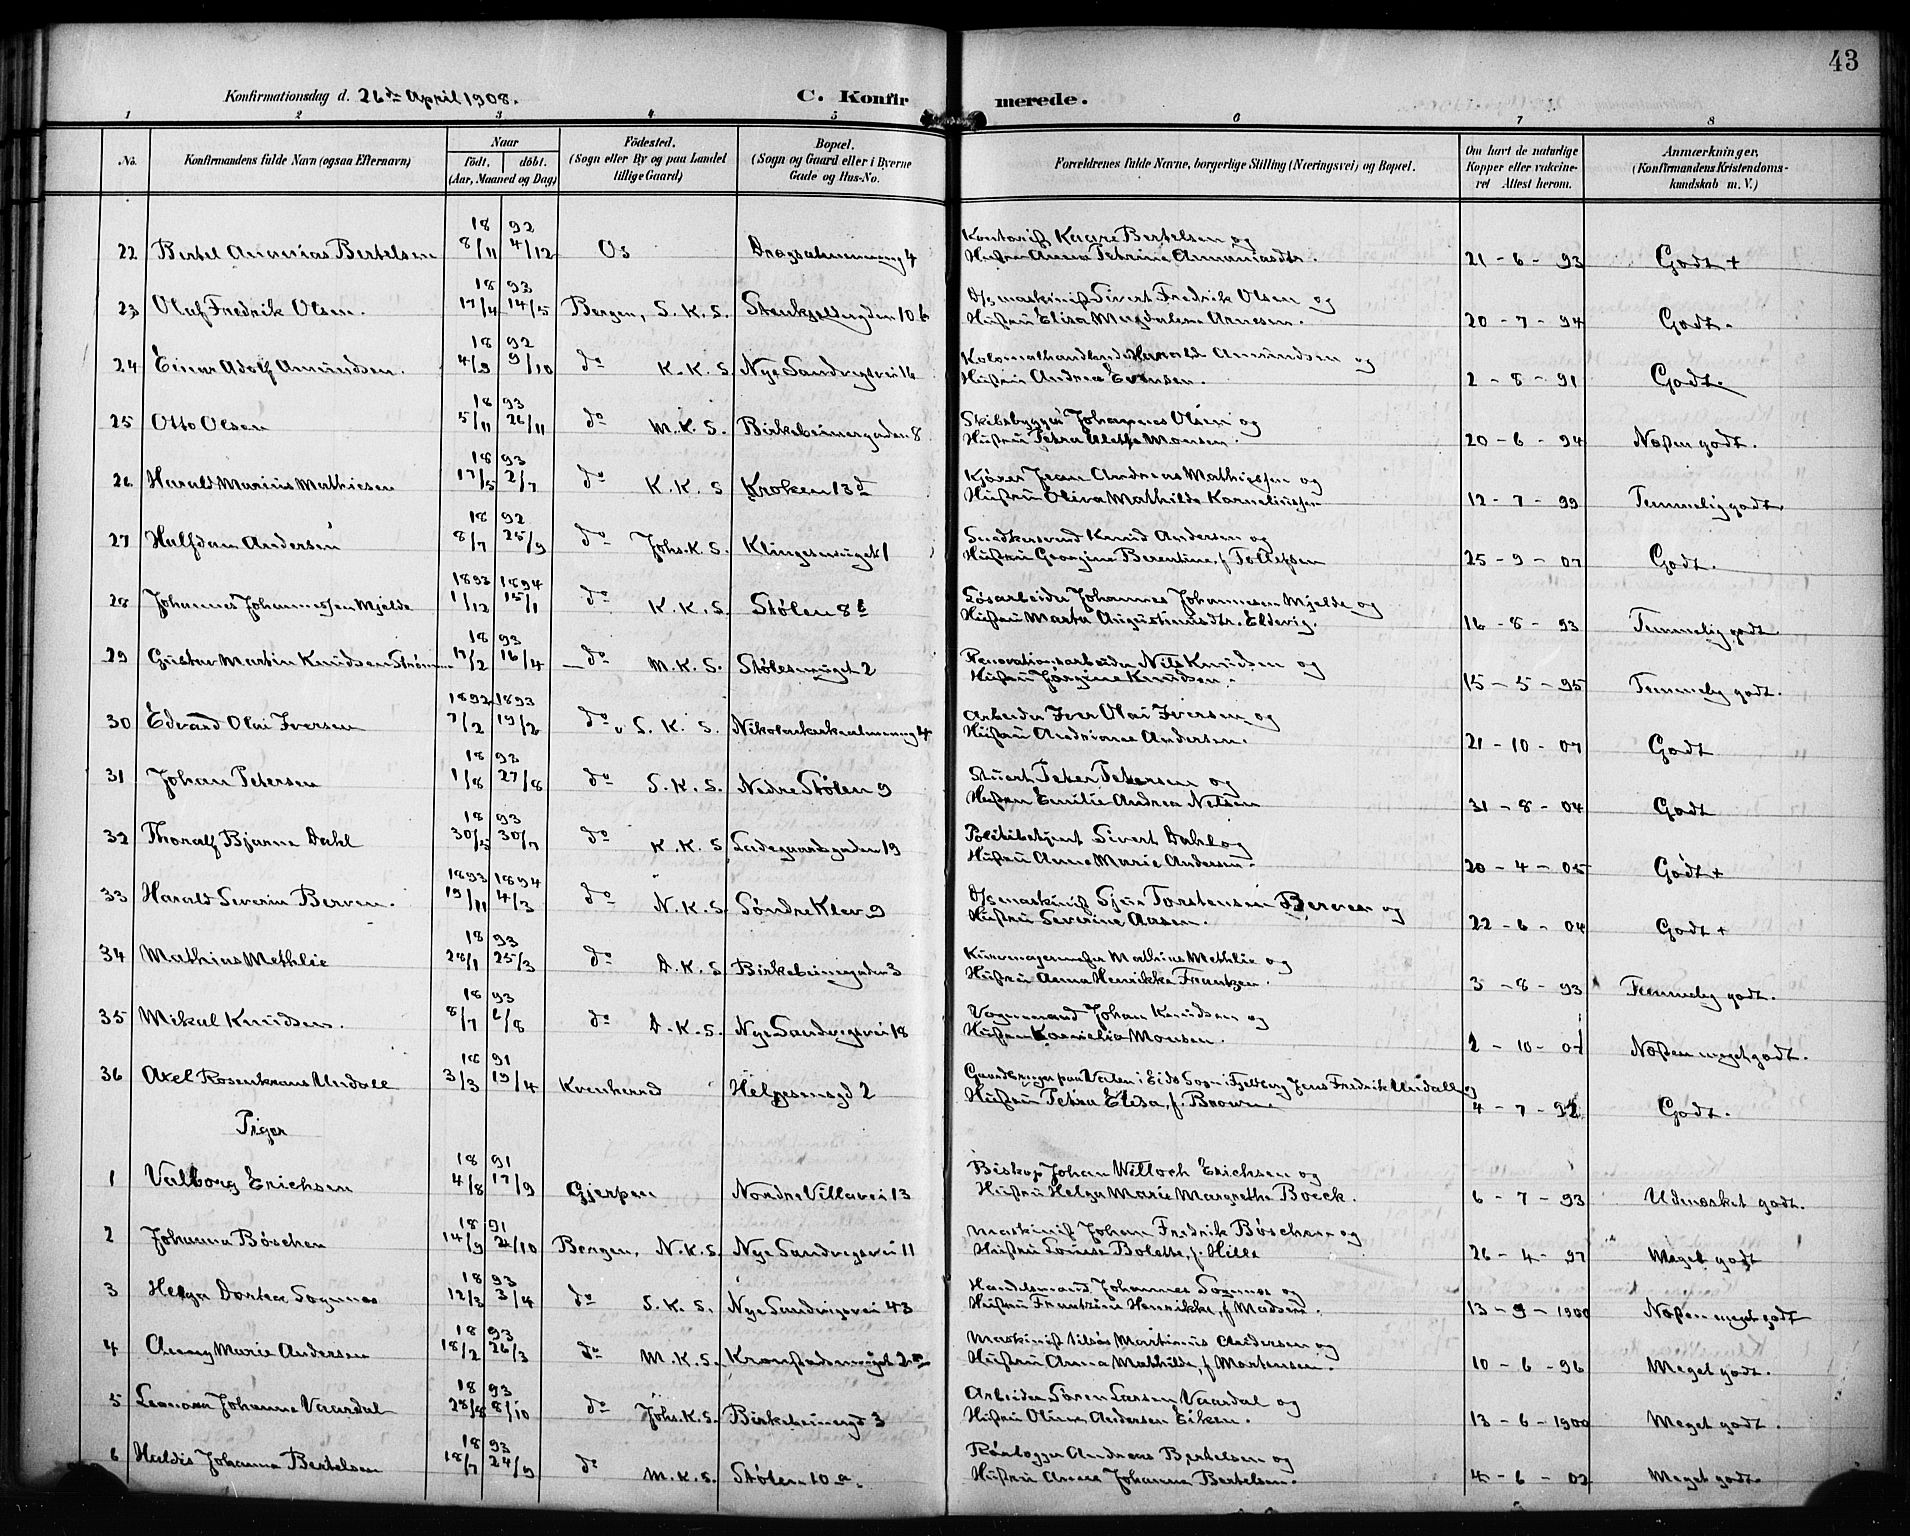 43
Konfirmationsdag d. 26de April 1908.
C. Konfirmerede.
1 2 3 4 5 6 7 8
No.
Konfirmandens fulde Navn (ogsaa Efternavn)
Naar
födt, döbt.
(Aar, Maaned og Dag)
Födested.
(Sogn eller By og paa Landet
tillige Gaard)
Bopæl.
(Sogn og Gaard eller i Byerne
Gade og Hus-No.
Forældrenes fulde Navne, borgerlige Stilling (Næringsvei) og Bopæl.
Om havt de naturlige
Kopper eller vakcine-
ret Attest herom.
Anmærkninger,
(Konfirmandens Kristendoms-
kundskab m. V.)
18 92
22 Bertel Ananias Bertelsen 8/11 4/12 Os Dragsalmenning 4
Kontorist Kaare Bertelsen og
Hustru Anna Petrine Ananiasdtr. 21-6-93 Godt +
18 93
23 Oluf Fredrik Olsen. 17/4 14/5 Bergen, S.K.S. Stenkjellergaden 10 b
D/s maskinist Sivert Fredrik Olsen og
Hustru Elisa Magdalena Arnesen. 20-7-94 Godt.
18 92
24 Einar Adolf Amundsen. 4/9 9/10 do K.K.S. Nye Sandvigsvei 16
Kolonialhandlende Harald Amundsen og
Hustru Andrea Evensen. 2-8-91 Godt.
18 93
25 Otto Olsen 5/11 26/11 do M.K.S. Birkebeinergaden 8
Skibsbygger Johannes Olsen og
Hustru Petra Alette Monsen. 20-6-94 Næsten godt.
18 93
26 Harald Marius Mathiesen 17/5 2/7 do K.K.S Kroken 13 d
Kjører Jean Andreas Mathiessen og
Hustru Oliva Mathilde Karneliussen 12-7-99 Temmelig godt.
18 92
27 Halfdan Andersen 8/7 25/9 do Johs.K.S. Klingesmuget 1
Snedkersvend Knud Andersen og
Hustru Georgine Berentine, f Tollefsen 25-9-07 Godt.
1893 1894
28 Johannes Johannessen Mjelde 1/12 15/1 do K.K.S. Stølen 8 b
Løsarbeider Johannes Johannesen Mjelde og
Hustru Marta Augustinusdtr. Eldevig. 16-8-93 Temmelig godt
18 93
29 Gustav Martin Knudsen 17/2 16/4 do M.K.S. Stølesmuget 2
Renovationsarbeider Nils Knudsen og
Hustru Jørgine Knudsen. 15-5-95 Temmelig godt.
1892 1893
30 Edvard Olai Iversen 7/2 19/2 do S.K.S. Nikolaikirkealmenning
Arbeider Iver Olai Iversen og
Hustru Andriane Andersen. 21-10-07 Godt
18 93
31 Johan Petersen 1/8 27/8 do S.K.S. Nedre Stølen 9
Stuert Peter Petersen og
Hustru Emilie Andrea Nelsen 31-8-04 Godt
18 93
32 Thoralf Bjarne Dahl 30/5 30/7 do K.K.S Ladegaardsgaden 19
Politibetjent Sivert Dahl og
Hustru Anne Marie Andersen. 20-4-05 Godt +
1893 1894
33 Harald Severin Berven. 19/11 4/3 do N.K.S. Søndre Klev 9
D/s maskinist Sjur Torstensen Berven og
Hustru Severine Aasen. 22-6-04 Godt +
18 93
34 Mathias Methlie 28/1 25/3 do D.K.S Birkebeinergaden 3
Kurvmagermester Mathias Methlie og
Hustru Anna Henrikka Frantzen. 3-8-93 Temmelig godt.
18 93
35 Mikal Knudsen. 8/7 6/8 do D.K.S. Nye Sandvigsvei 18
Vognmand Johan Knudsen og
Hustru Kornelia Monsen. 2-10-07 Næsten meget godt.
18 91
36 Axel Rosenkrans Undall 3/3 19/4 Kvinherred Helgesensgd 2
Gaardbruger paa Valen i Eids Sogn i Fjelberg Jens Fredrik Undall og
Hustru Petra Elisa, f. Brown. 4-7-92 Godt.
Piger
18 91
1 Valborg Erichsen 4/8 17/9 Gjerpen Nordre Villavei 13
Biskop Johan Willoch Erichsen og
Hustru Helga Marie Margrethe Boeck. 6-7-93 Udmærket godt.
18 91
2 Johanna Böschen 14/9 21/10 Bergen, N.K.S. Nye Sandvigsvei 11
Maskinist Johan Fredrik Böschen og
Hustru Lovise Bolette, f. Hille 26-4-97 Meget godt
18 93
3 Helga Dortea Sognnes 12/3 3/4 do S.K.S. Nye Sandvigsvei 43
Handelsmand Johannes Sognnes og
Hustru Frantzine Henrikke, f Madsen. 13-9-1900 Næsten meget godt
18 93
4 Anny Marie Andersen 18/2 26/3 do M.K.S. Kronstadsmuget 2 a
Maskinist Nilsås Martinus Andersen og
Hustru Anna Mathilde, f Martensen. 10-6-96 Meget godt.
18 93
5 Leonora Johanne Vaardal 28/8 8/10 do Johs.K.S. Birkebeinergd 3
Arbeider Søren Larsen Vaardal og
Hustru Oline Andersen Eiken. 13-6-1900 Meget godt.
18 93
6 Haldis Johanna Bertelsen 18/7 24/9 do M.K.S. Stølen 10 a.
Rørlegger Andreas Bertelsen og
Hustru Anna Johanna Bertelsen. 4-6-02 Meget godt.